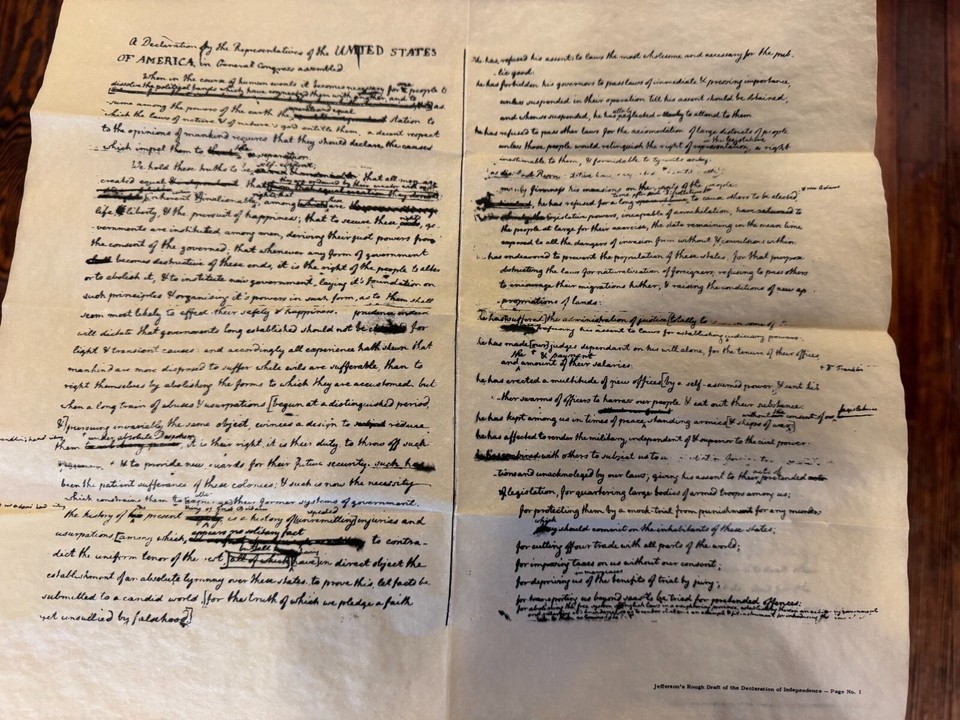 A Declaration by the Representatives of the UNITED STATES
OF AMERICA, in General Congress assembled.
When in the course of human events it becomes necessary for one people to
dissolve the political bands which have connected them with another, and to
assume among the powers of the earth the station to
which the laws of nature & of nature's god entitle them, a decent respect
to the opinions of mankind requires that they should declare the causes
which impel them to the separation.
We hold these truths to be self-evident; that all men are
created equal that
inherent & inalienable, among which are
life, & liberty, & the pursuit of happiness; that to secure these rights, go
vernments are instituted among men, deriving their just powers from
the consent of the governed; that whenever any form of government
becomes destructive of these ends, it is the right of the people to alter
or to abolish it, & to institute new government, laying it's foundation on
such principles & organising it's powers in such form, as to them shall
seem most likely to effect their safety & happiness. prudence indeed
will dictate that governments long established should not be changed for
light & transient causes: and accordingly all experience hath shewn that
mankind are more disposed to suffer while evils are sufferable, than to
right themselves by abolishing the forms to which they are accustomed. but
when a long train of abuses & usurpations [begun at a distinguished period,
& pursuing invariably the same object, evinces a design to reduce
under absolute Despotism
them it is their right, it is their duty, to throw off such
& to provide new guards for their future security. such has
been the patient sufferance of these colonies; & such is now the necessity
which constrains them to their former systems of government.
King of Great Britain
the history of the present is a history of unremitting injuries and
repeated
usurpations, [among which, appears no solitary fact to contra-
dict the uniform tenor of the rest, [all of which] [have] in direct object the
establishment of an absolute tyranny over these states. to prove this, let facts be
submitted to a candid world, [for the truth of which we pledge a faith
yet unsullied by falsehood]
he has refused his assent to laws the most wholesome and necessary for the pub-
-lic good:
he has forbidden his governors to pass laws of immediate & pressing importance,
unless suspended in their operation till his assent should be obtained;
and when suspended, he has neglected utterly to attend to them.
he has refused to pass other laws for the accomodation of large districts of people
unless those people would relinquish the right of representation, a right
in the legislature
inestimable to them, & formidable to tyrants only:
he has refused for a long to cause others to be elected
legislative powers, incapable of annihilation, have returned to
the people at large for their exercise, the state remaining in the mean time
exposed to all the dangers of invasion from without & convulsions within:
has endeavored to prevent the population of these states; for that purpose
obstructing the laws for naturalization of foreigners, refusing to pass others
to encourage their migrations hither, & raising the conditions of new ap-
-propriations of lands:
he has [suffered] the administration of justice [totally to
refusing his assent to laws for establishing judiciary powers:
he has made [our] judges dependant on his will alone, for the tenure of their offices,
the & payment
+ Dr Franklin
and amount of their salaries:
he has erected a multitude of new offices [by a self-assumed power, & sent hi-
-ther swarms of officers to harrass our people & eat out their substance:
without the consent of our legislatures
he has kept among us in times of peace, standing armies [& ships of war]
he has affected to render the military, independent of & superior to the civil power:
with others to subject us to a
-tions and unacknoleged by our laws; giving his assent to their pretended acts of
of legislation, for quartering large bodies of armed troops among us;
for protecting them by a mock-trial from punishment for any murders
which
they should commit on the inhabitants of these states;
for cutting off our trade with all parts of the world;
for imposing taxes on us without our consent;
for depriving us of the benefits of trial by jury;
for transporting us beyond seas to be tried for pretended offences;
for abolishing the free system of English laws in a neighboring province
Jefferson's Rough Draft of the Declaration of Independence — Page No. 1